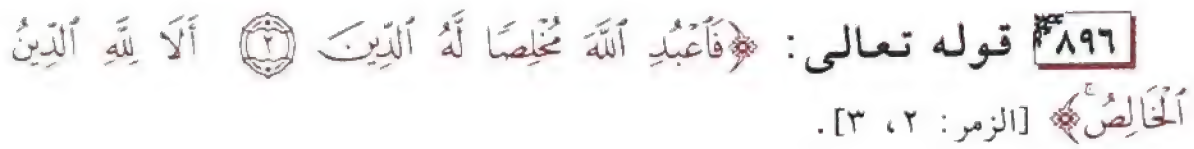 ٨٩٦ قوله تعالى: ﴿فَٱعۡبُدِ ٱللَّهَ مُخۡلِصٗا لَّهُ ٱلدِّينَ ٢ أَلَا لِلَّهِ ٱلدِّينُ
ٱلۡخَالِصُۚ﴾ [الزمر: ٢، ٣].